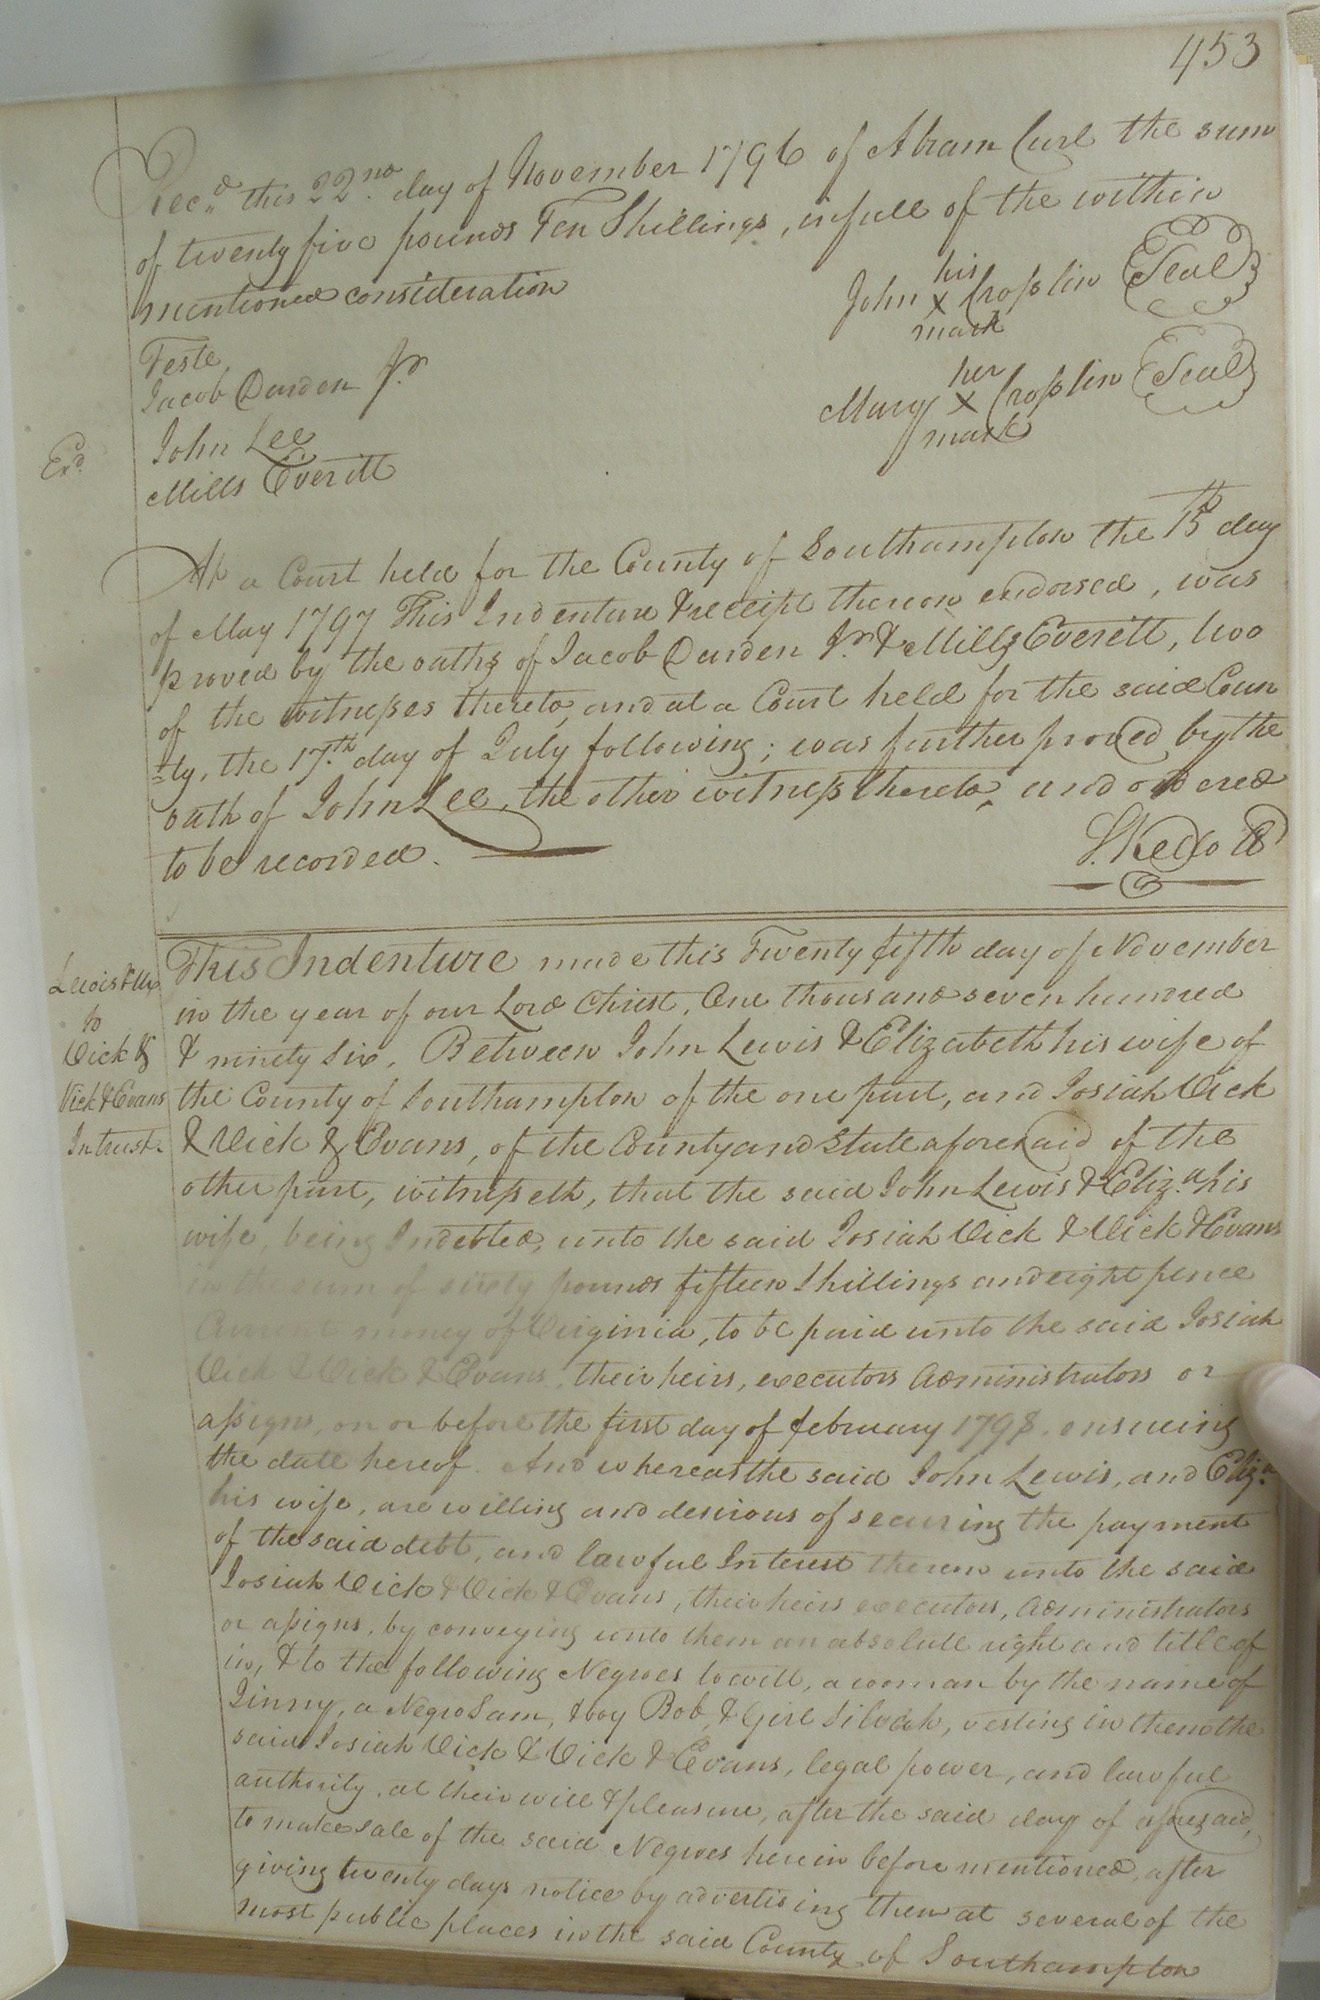 453
Rec.d this 22.nd day of November 1796 of Abram Curl the sum
of twenty five pounds Ten Shillings, in full of the within
mentioned consideration
his
John x Croßlin Seal
mark
her
Mary x Croßlin Seal
mark
Teste
Jacob Darden Jr
John Lee
Mills Everitt
Exd.
At a Court held for the County of Southampton the 15th day
of May 1797 This Indenture & receipt thereon endorsed, was
proved by the oaths of Jacob Darden Jr. & Mills Everitt, two
of the witneßes thereto, and at a Court held for the said Coun
=ty, the 17.th day of July following; was further proved by the
oath of John Lee, the other witneß thereto, and ordered
to be recorded.
S. Kello
Lewis & Ux
to
Vick &
Vick & Evans
In trust.
This Indenture made this Twenty fifth day of November
in the year of our Lord Christ, One thousand seven hundred
& ninety six, Between John Lewis & Elizabeth his wife of
the County of Southampton of the one part, and Josiah Vick
& Vick & Evans, of the County and State aforesaid of the
other part, witneßeth, that the said John Lewis & Eliz.a his
wife, being Indebted, unto the said Josiah Vick & Vick & Evans
in the sum of sixty pounds fifteen Shillings and eight pence
Current money of Virginia, to be paid unto the said Josiah
Vick & Vick & Evans, their heirs, executors Administrators or
aßigns, on or before the first day of february 1798. ensueing
the date hereof. And whereas the said John Lewis, and Eliz.a
his wife, are willing and desirous of securing the payment
of the said debt, and lawful Interest thereon unto the said
Josiah Vick & Vick & Evans, their heirs executors, Administrators
or aßigns, by conveying unto them an absolute right and title of
in, & to the following Negroes towitt, a woman by the name of
Jinny, a Negro Sam, & boy Bob, & Girl Silvah, vesting in them the
said Josiah Vick & Vick & Evans, legal power, and lawful
authority, at their will & pleasure, after the said day of aforesaid,
to make sale of the said Negroes herein before mentioned, after
giving twenty days notice by advertising them at several of the
most public places in the said County of Southampton